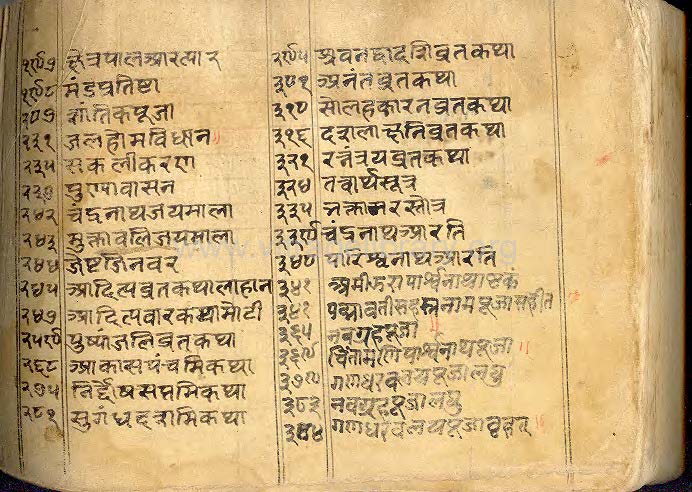 १९७ क्षेत्रपालआरत्यार
१९८ मंडप्रतिष्टा
२०७ शांतिकपूजा
२३१ जलहामविधान
२३५ सकलीकरण
२३७ पुण्यावासन
२४२ चंद्रनाथजयमाला
२४३ मुक्तावलिजयमाला
२४४ जेष्टजिनवर
२४५ आदित्यव्रतकथालाहान
२४७ आदित्यवारकथामोटी
२५९ पुष्पांजलिव्रतकथा
२६८ आकासपंचमिकथा
२७५ निर्द्दोषसप्तमिकथा
२८१ सुगंधदशमिकथा
२९५ श्रवनद्वादशिव्रतकथा
३०१ अनंतव्रतकथा
३१० सोलहकारनव्रतकथा
३१६ दशलाक्षनिव्रतकथा
३२१ रत्नंत्रयव्रतकथा
३२४ तत्वार्थसूत्र
३३५ भक्तामरस्तोत्र
३३९ चंद्रनाथआरति
३४० पारिश्वनाथआरति
३४१ पार्श्वनाथाष्टकं
३४२ पद्मावतीसहस्त्रनामपूजासहीत
३६५ नवग्रहपूजा
३६९ चिंतामणिपार्श्वनाथपूजा
३७९ गणधरवलयपूजालघु
३८३ नवग्रहपूजालघु
३८४ गणधरवलयपूजावृहत्